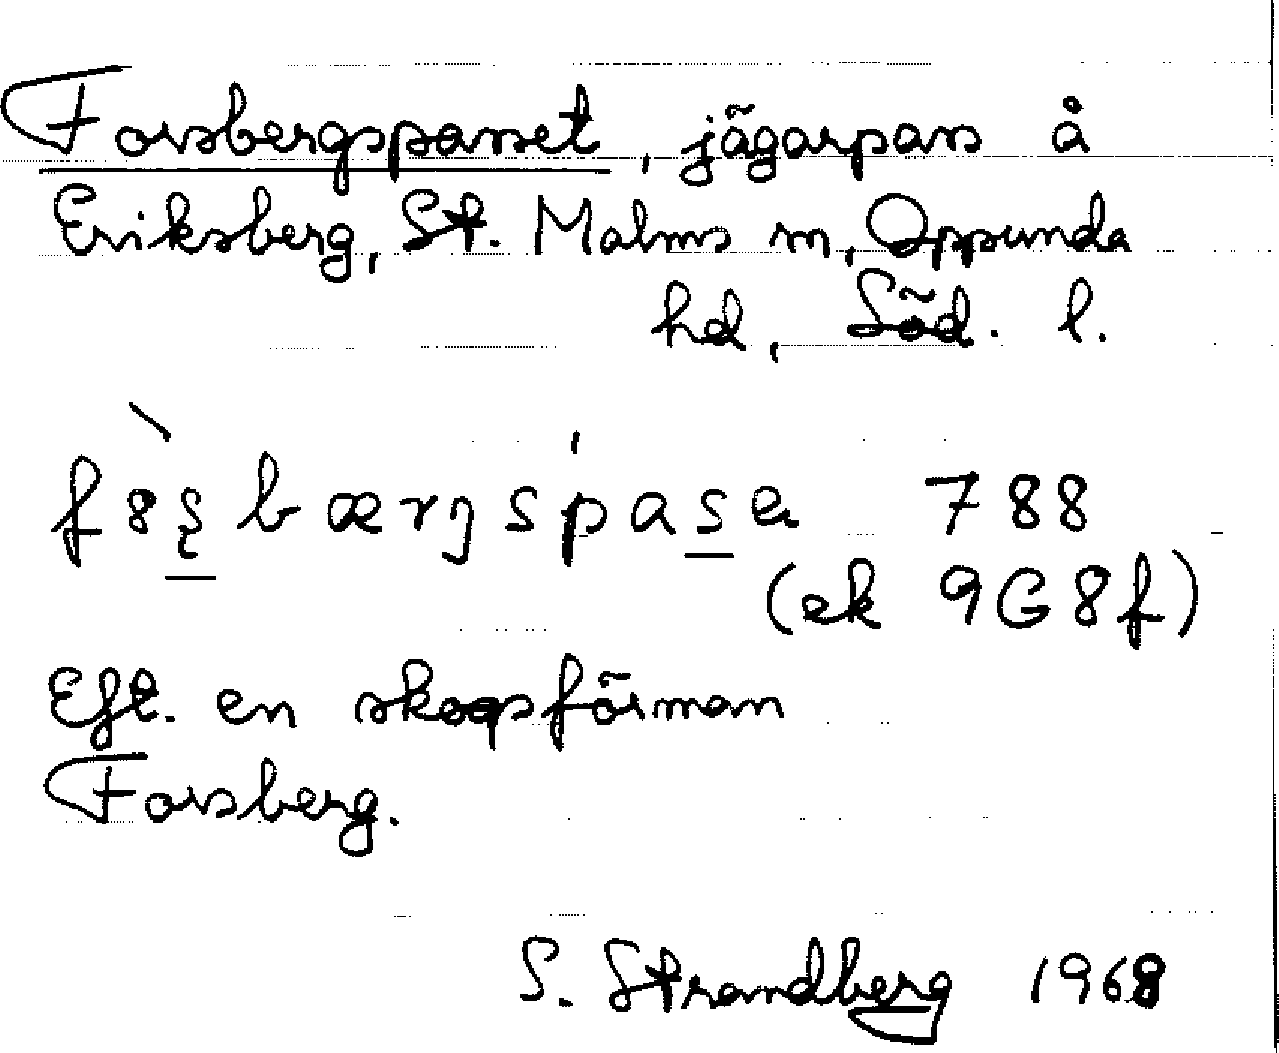 Forsbergspasset, jägarpass å
Eriksberg, St. Malms sn, Oppunda
hd, Söd. l.
788
(ek 9G8f)
Eft. en skogsförman
Forsberg.
S. Strandberg 1968